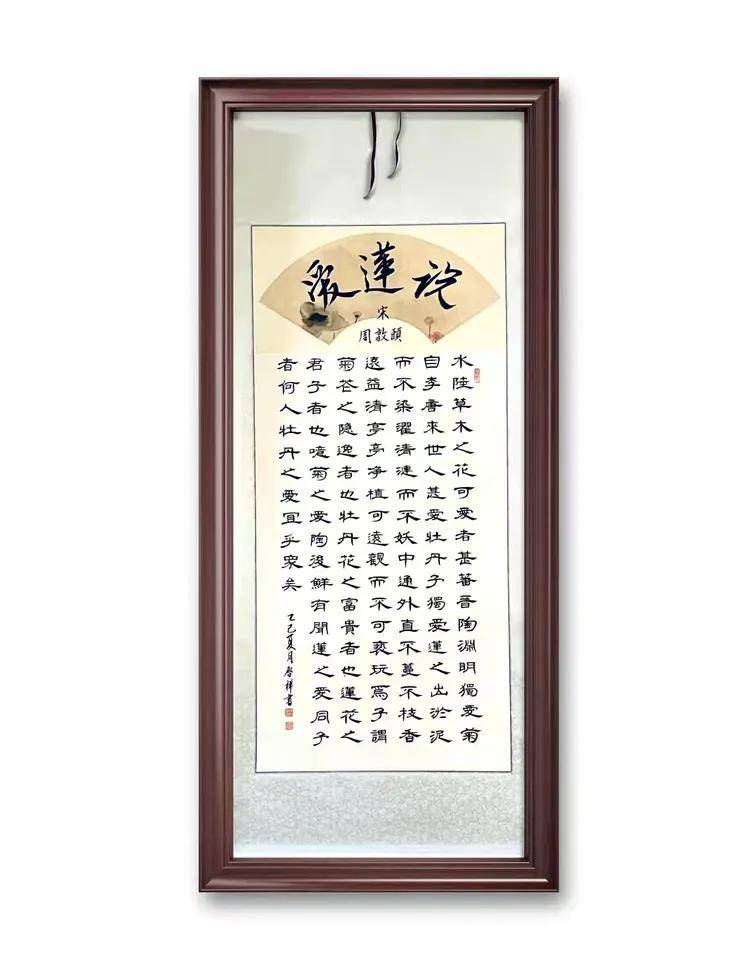 愛蓮説
宋
周敦頤
水陸草木之花可愛者甚蕃晉陶淵明獨愛菊
自李唐來世人甚愛牡丹予獨愛蓮之出淤泥
而不染濯清漣而不妖中通外直不蔓不枝香
遠益清亭亭净植可遠觀而不可褻玩焉予謂
菊花之隐逸者也牡丹花之富貴者也蓮花之
君子者也噫菊之愛陶後鮮有聞蓮之愛同予
者何人牡丹之愛宜乎衆矣
乙巳夏月啓祥書